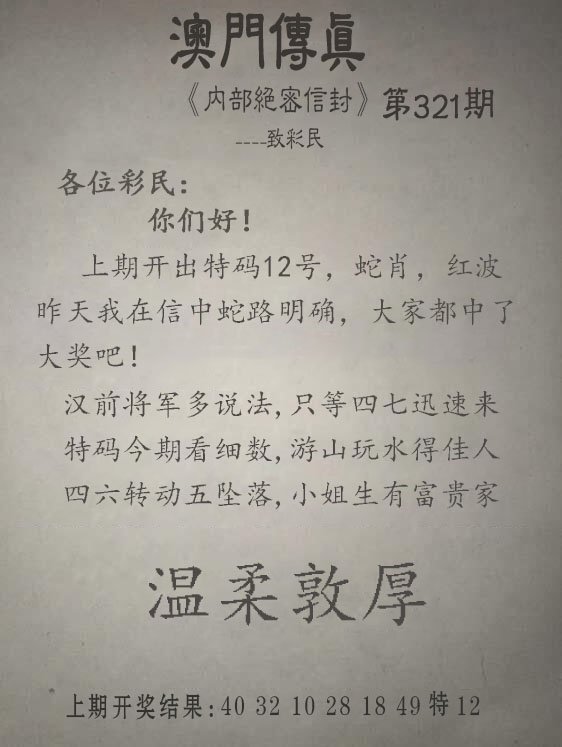 澳門傳眞
《内部絕密信封》第321期
----致彩民
各位彩民：
你们好！
上期开出特码12号，蛇肖，红波
昨天我在信中蛇路明确，大家都中了
大奖吧！
汉前将军多说法,只等四七迅速来
特码今期看细数,游山玩水得佳人
四六转动五坠落,小姐生有富贵家
温柔敦厚
上期开奖结果:40 32 10 28 18 49 特 12